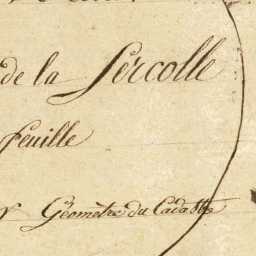 de la Sercolle
feuille
r Géomètre du Cadastre